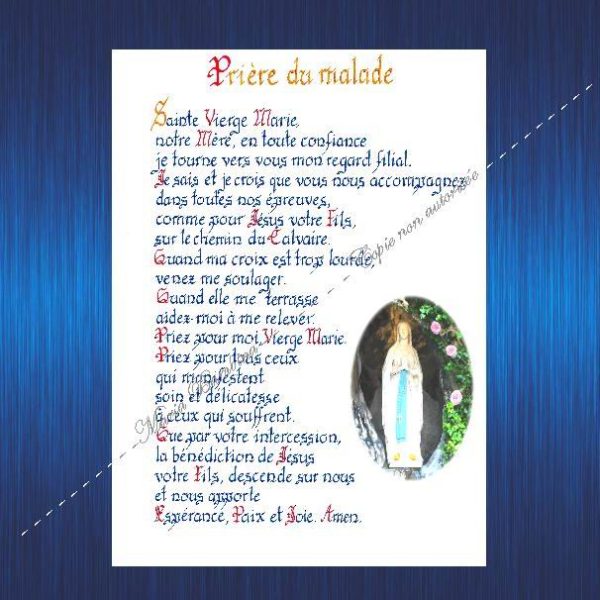 Prière du malade
Sainte Vierge Marie,
notre Mère, en toute confiance
je tourne vers vous mon regard filial.
Je sais et je crois que vous nous accompagnez
dans toutes nos épreuves,
comme pour Jésus votre Fils,
sur le chemin du Calvaire.
Quand ma croix est trop lourde,
venez me soulager.
Quand elle me terrasse
aidez-moi à me relever.
Priez pour moi, Vierge Marie.
Priez pour tous ceux
qui manifestent
soin et délicatesse
à ceux qui souffrent.
Que par votre intercession,
la bénédiction de Jésus
votre Fils, descende sur nous
et nous apporte
Espérance, Paix et Joie. Amen.
Copie non autorisée